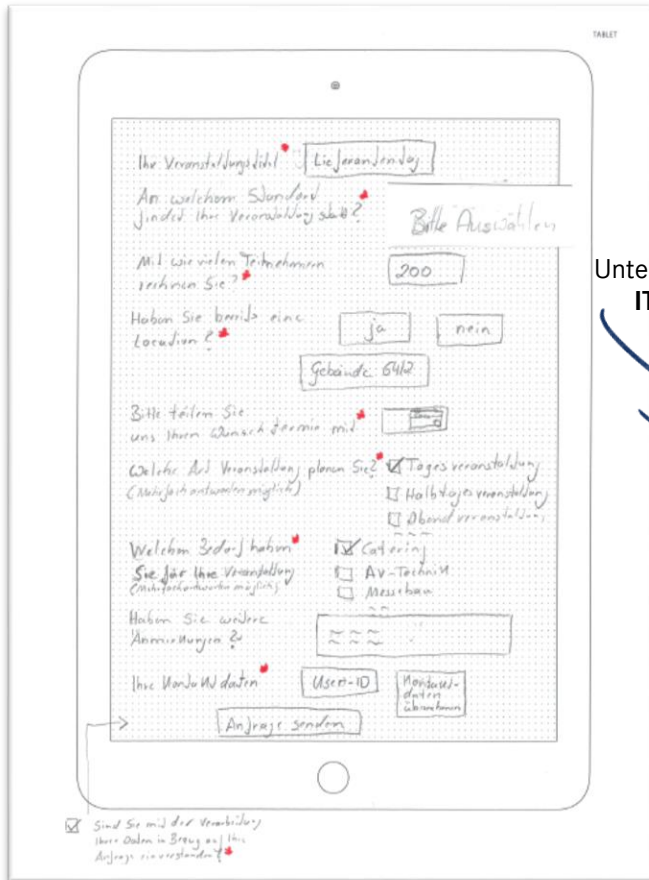 TABLET
Ihr Veranstaltungstitel * Lieferantentag
An welchem Standort
findet Ihre Veranstaltung statt? * Bitte Auswählen
Mit wie vielen Teilnehmern
rechnen Sie? * 200
Unte
IT
Haben Sie bereits eine
Location? * ja nein
Gebäude 64/2
Bitte teilen Sie
uns Ihren Wunschtermin mit *
Welche Art Veranstaltung planen Sie? * Tagesveranstaltung
(Mehrfachantworten möglich) Halbtagesveranstaltung
Abendveranstaltung
Welchen Bedarf haben * Catering
Sie für Ihre Veranstaltung AV-Technik
(Mehrfachantworten möglich) Messebau
Haben Sie weitere
Anmerkungen?
Ihre Kontaktdaten * User-ID Kontakt-
daten
übernehmen
Anfrage senden
Sind Sie mit der Verarbeitung
Ihrer Daten in Bezug auf Ihre
Anfrage einverstanden? *